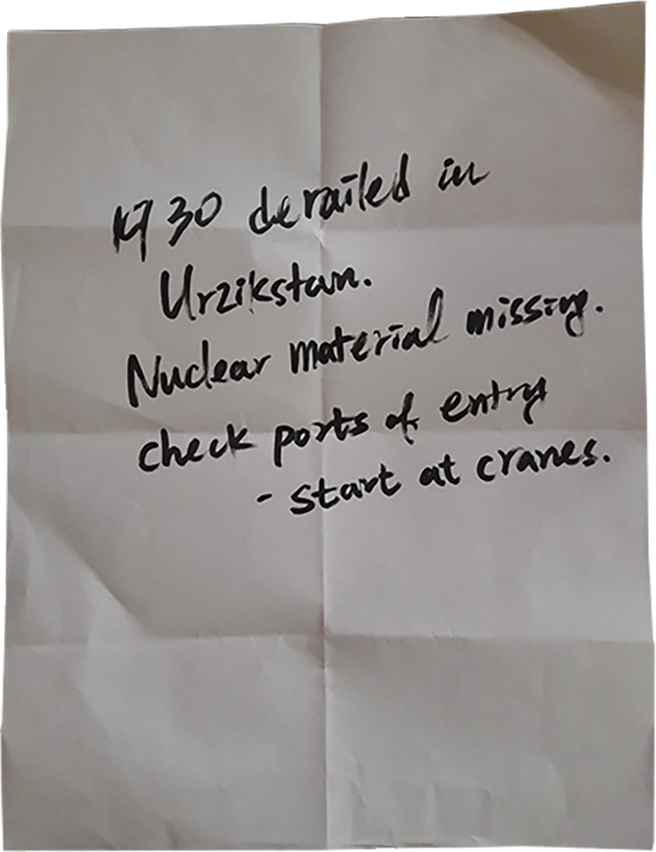 K9 30 derailed in
Urzikstan.
Nuclear material missing.
check ports of entry
- start at cranes.